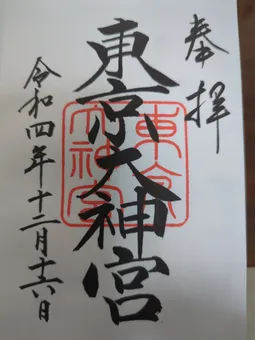 奉拝
東京大神宮
令和四年十二月十六日
東京大神宮